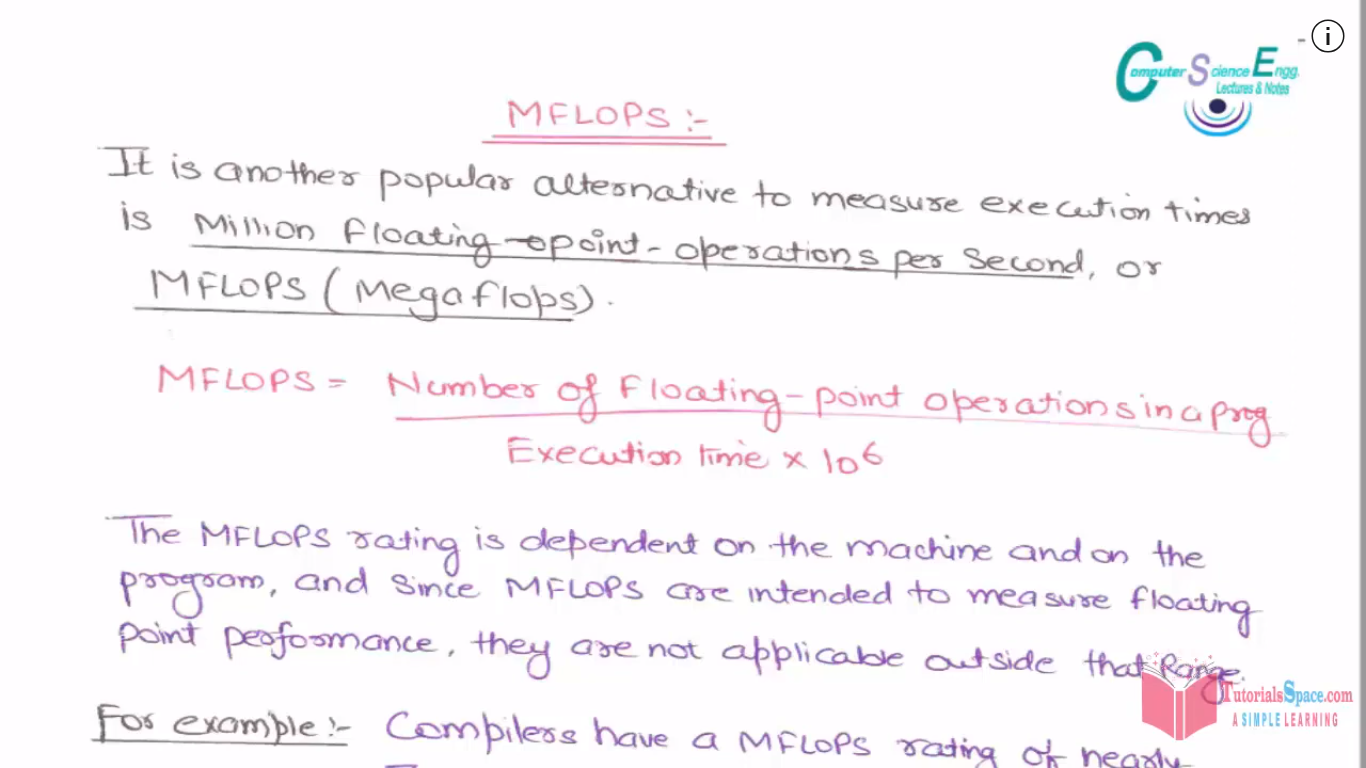 i
Computer Science Engg.
Lectures & Notes
MFLOPS :-
It is another popular alternative to measure execution times
is Million floating-point-operations per second, or
MFLOPS (Megaflops).
MFLOPS = Number of Floating-point operations in a prog
Execution time × 10⁶
The MFLOPS rating is dependent on the machine and on the
program, and since MFLOPS are intended to measure floating
point performance, they are not applicable outside that Range.
TutorialsSpace.com
A SIMPLE LEARNING
For example :- Compilers have a MFLOPS rating of nearly